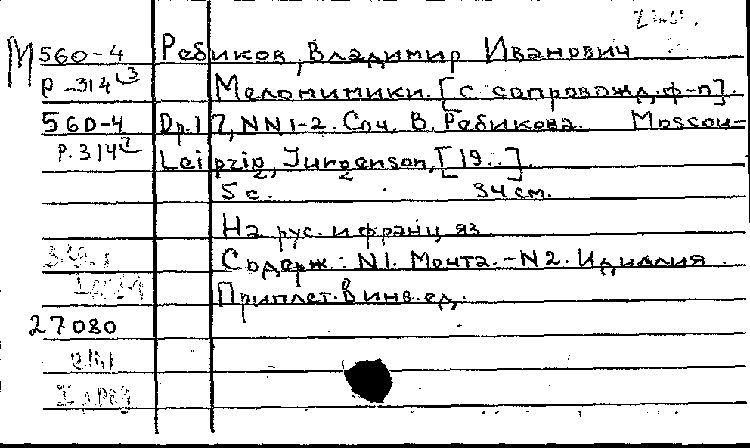 М 560-4 Ребиков, Владимир Иванович
Р-314 Меломимики. [с сопровожд. ф-п].
560-4 Op. 17, NN 1-2. Соч. В. Ребикова. Moscou-
Р. 314 Leipzig, Jurgenson, [19..].
5 с. 34 см.
На рус. и франц. яз.
Содерж.: N1. Мечта. - N2. Идиллия.
Приплет. в инв. ед.
27080